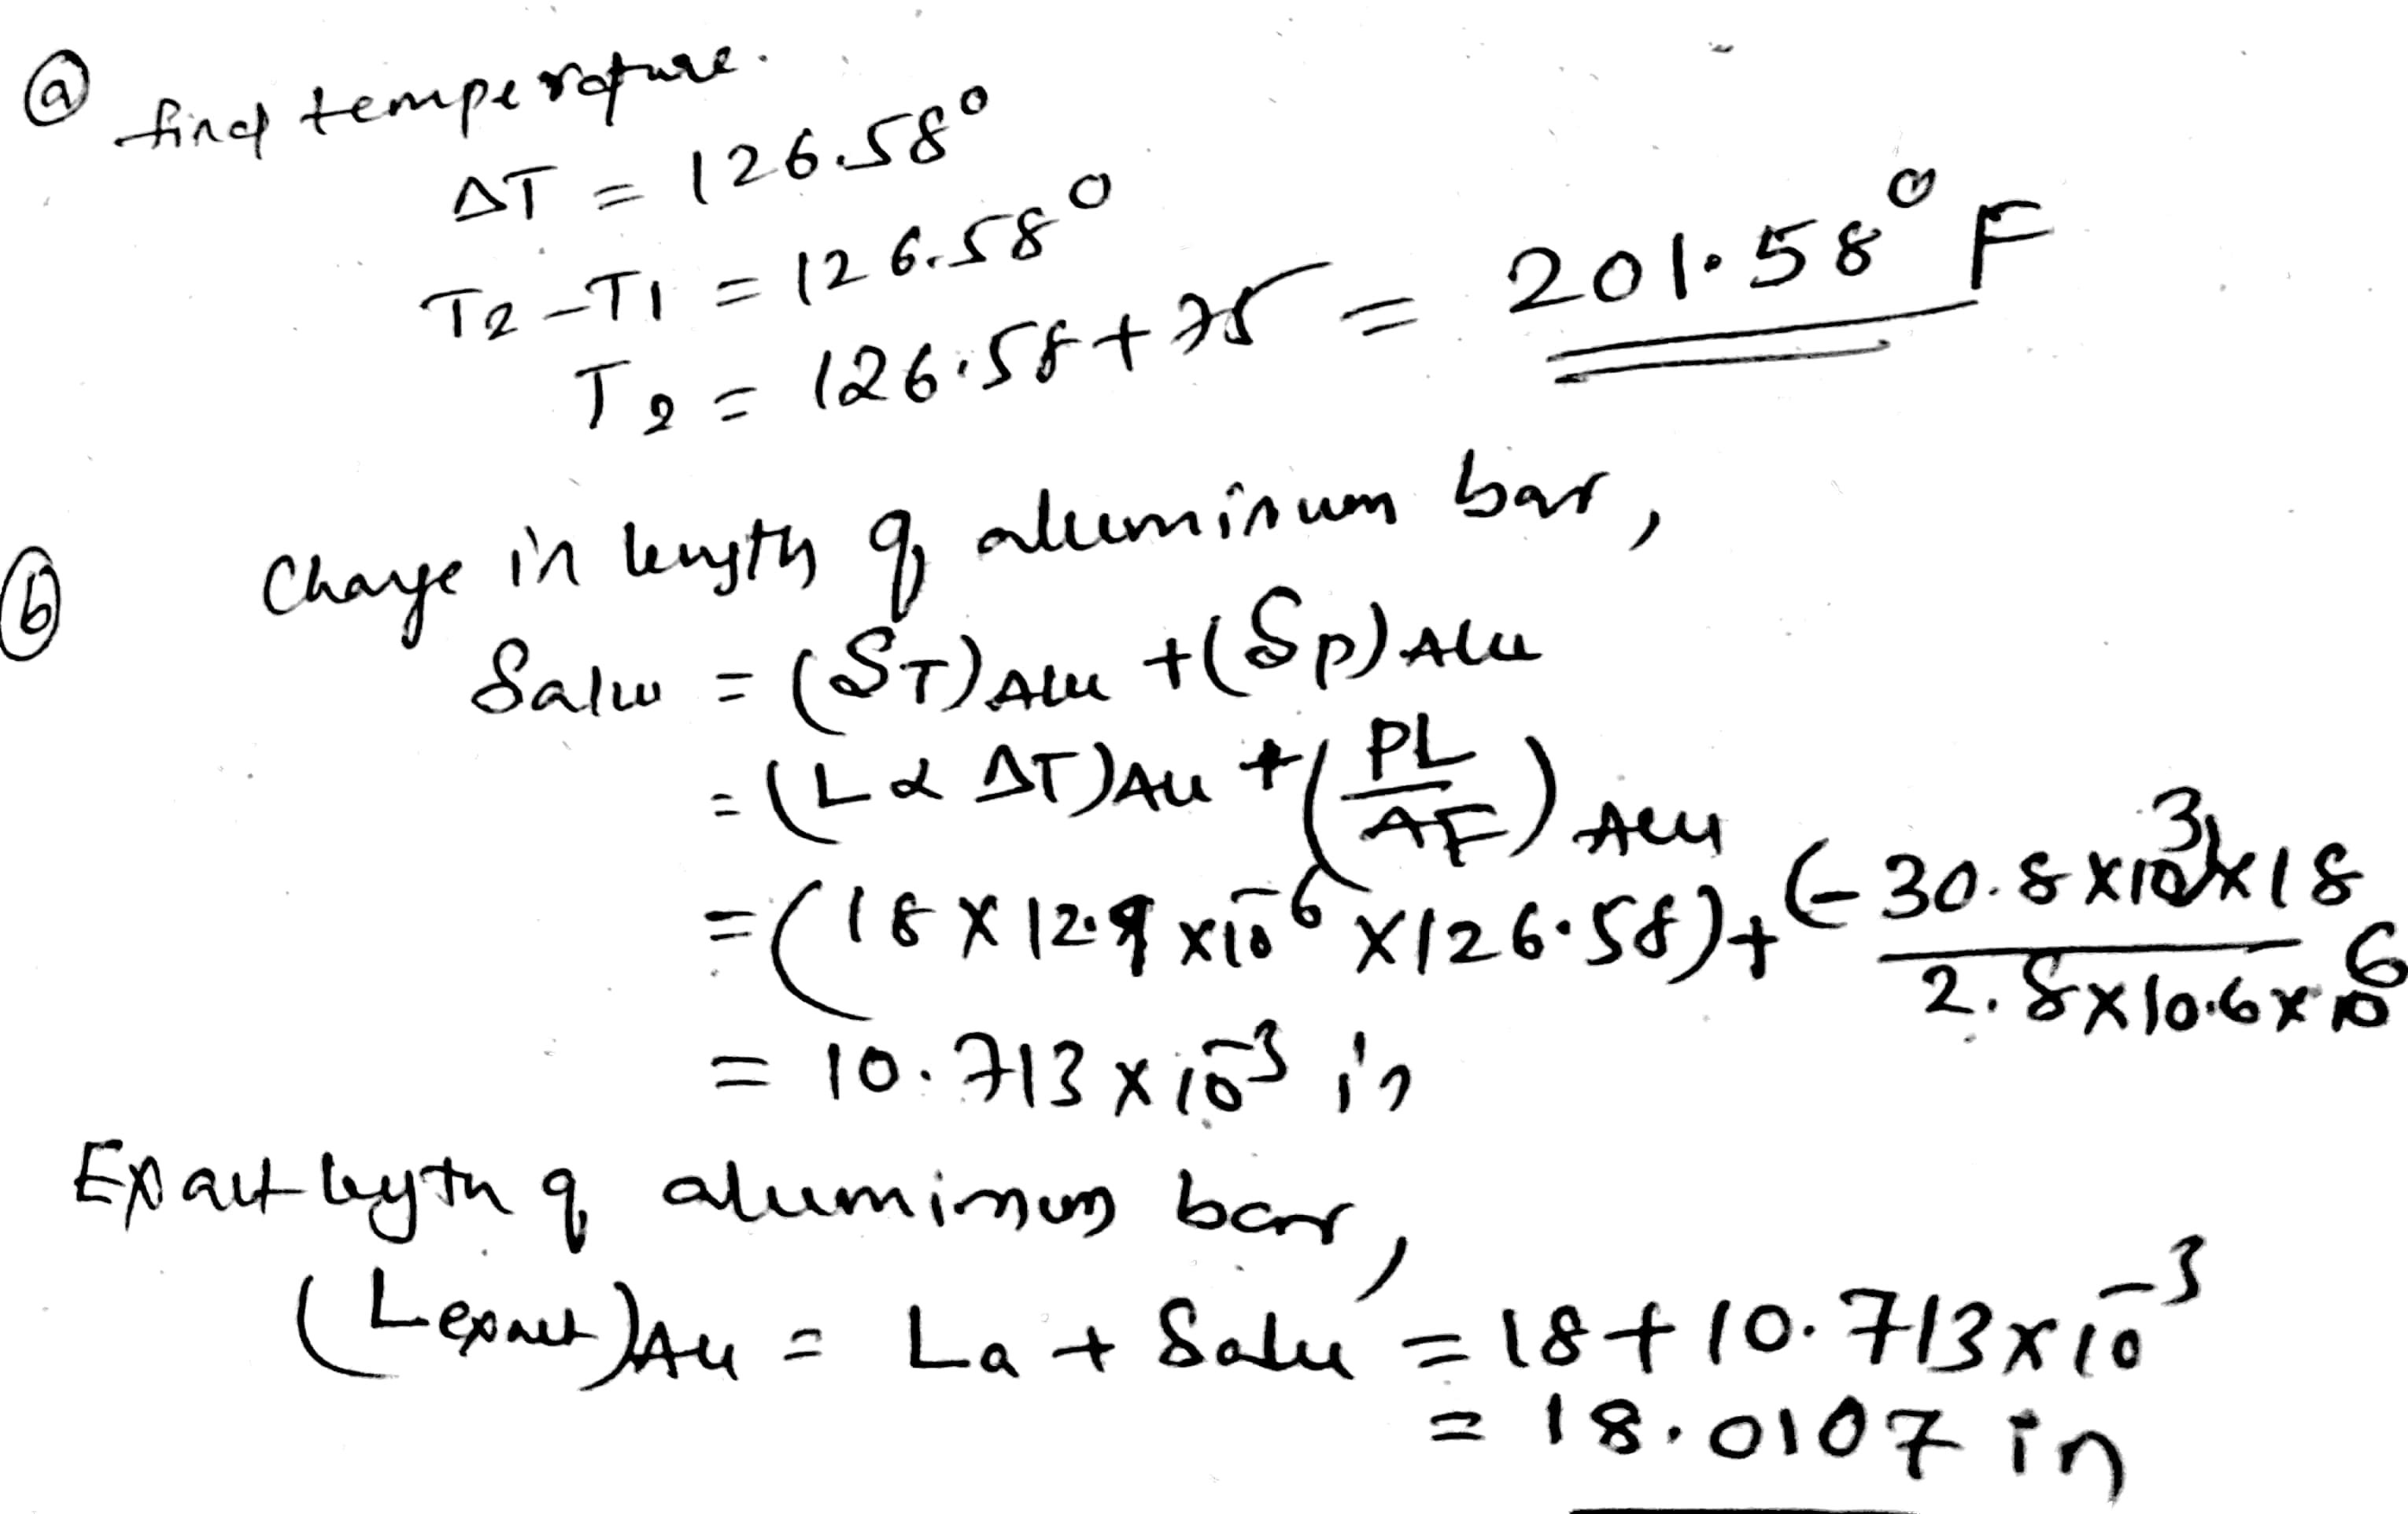 ⓐ final temperature.
ΔT = 126.58°
T2 - T1 = 126.58°
T2 = 126.58 + 75 = 201.58° F
ⓑ Change in length of aluminum bar,
δalu = (δT)Alu + (δP)Alu
= (L α ΔT)Alu + (PL/AE)Alu
= (18 X 12.9 x 10^-6 X 126.58) + (-30.8 X 10^3) X 18 / 2.8 X 10.6 x 10^6
= 10.713 x 10^-3 in
Exact length of aluminum bar,
(Lexact)Alu = La + δalu = 18 + 10.713 x 10^-3
= 18.0107 in